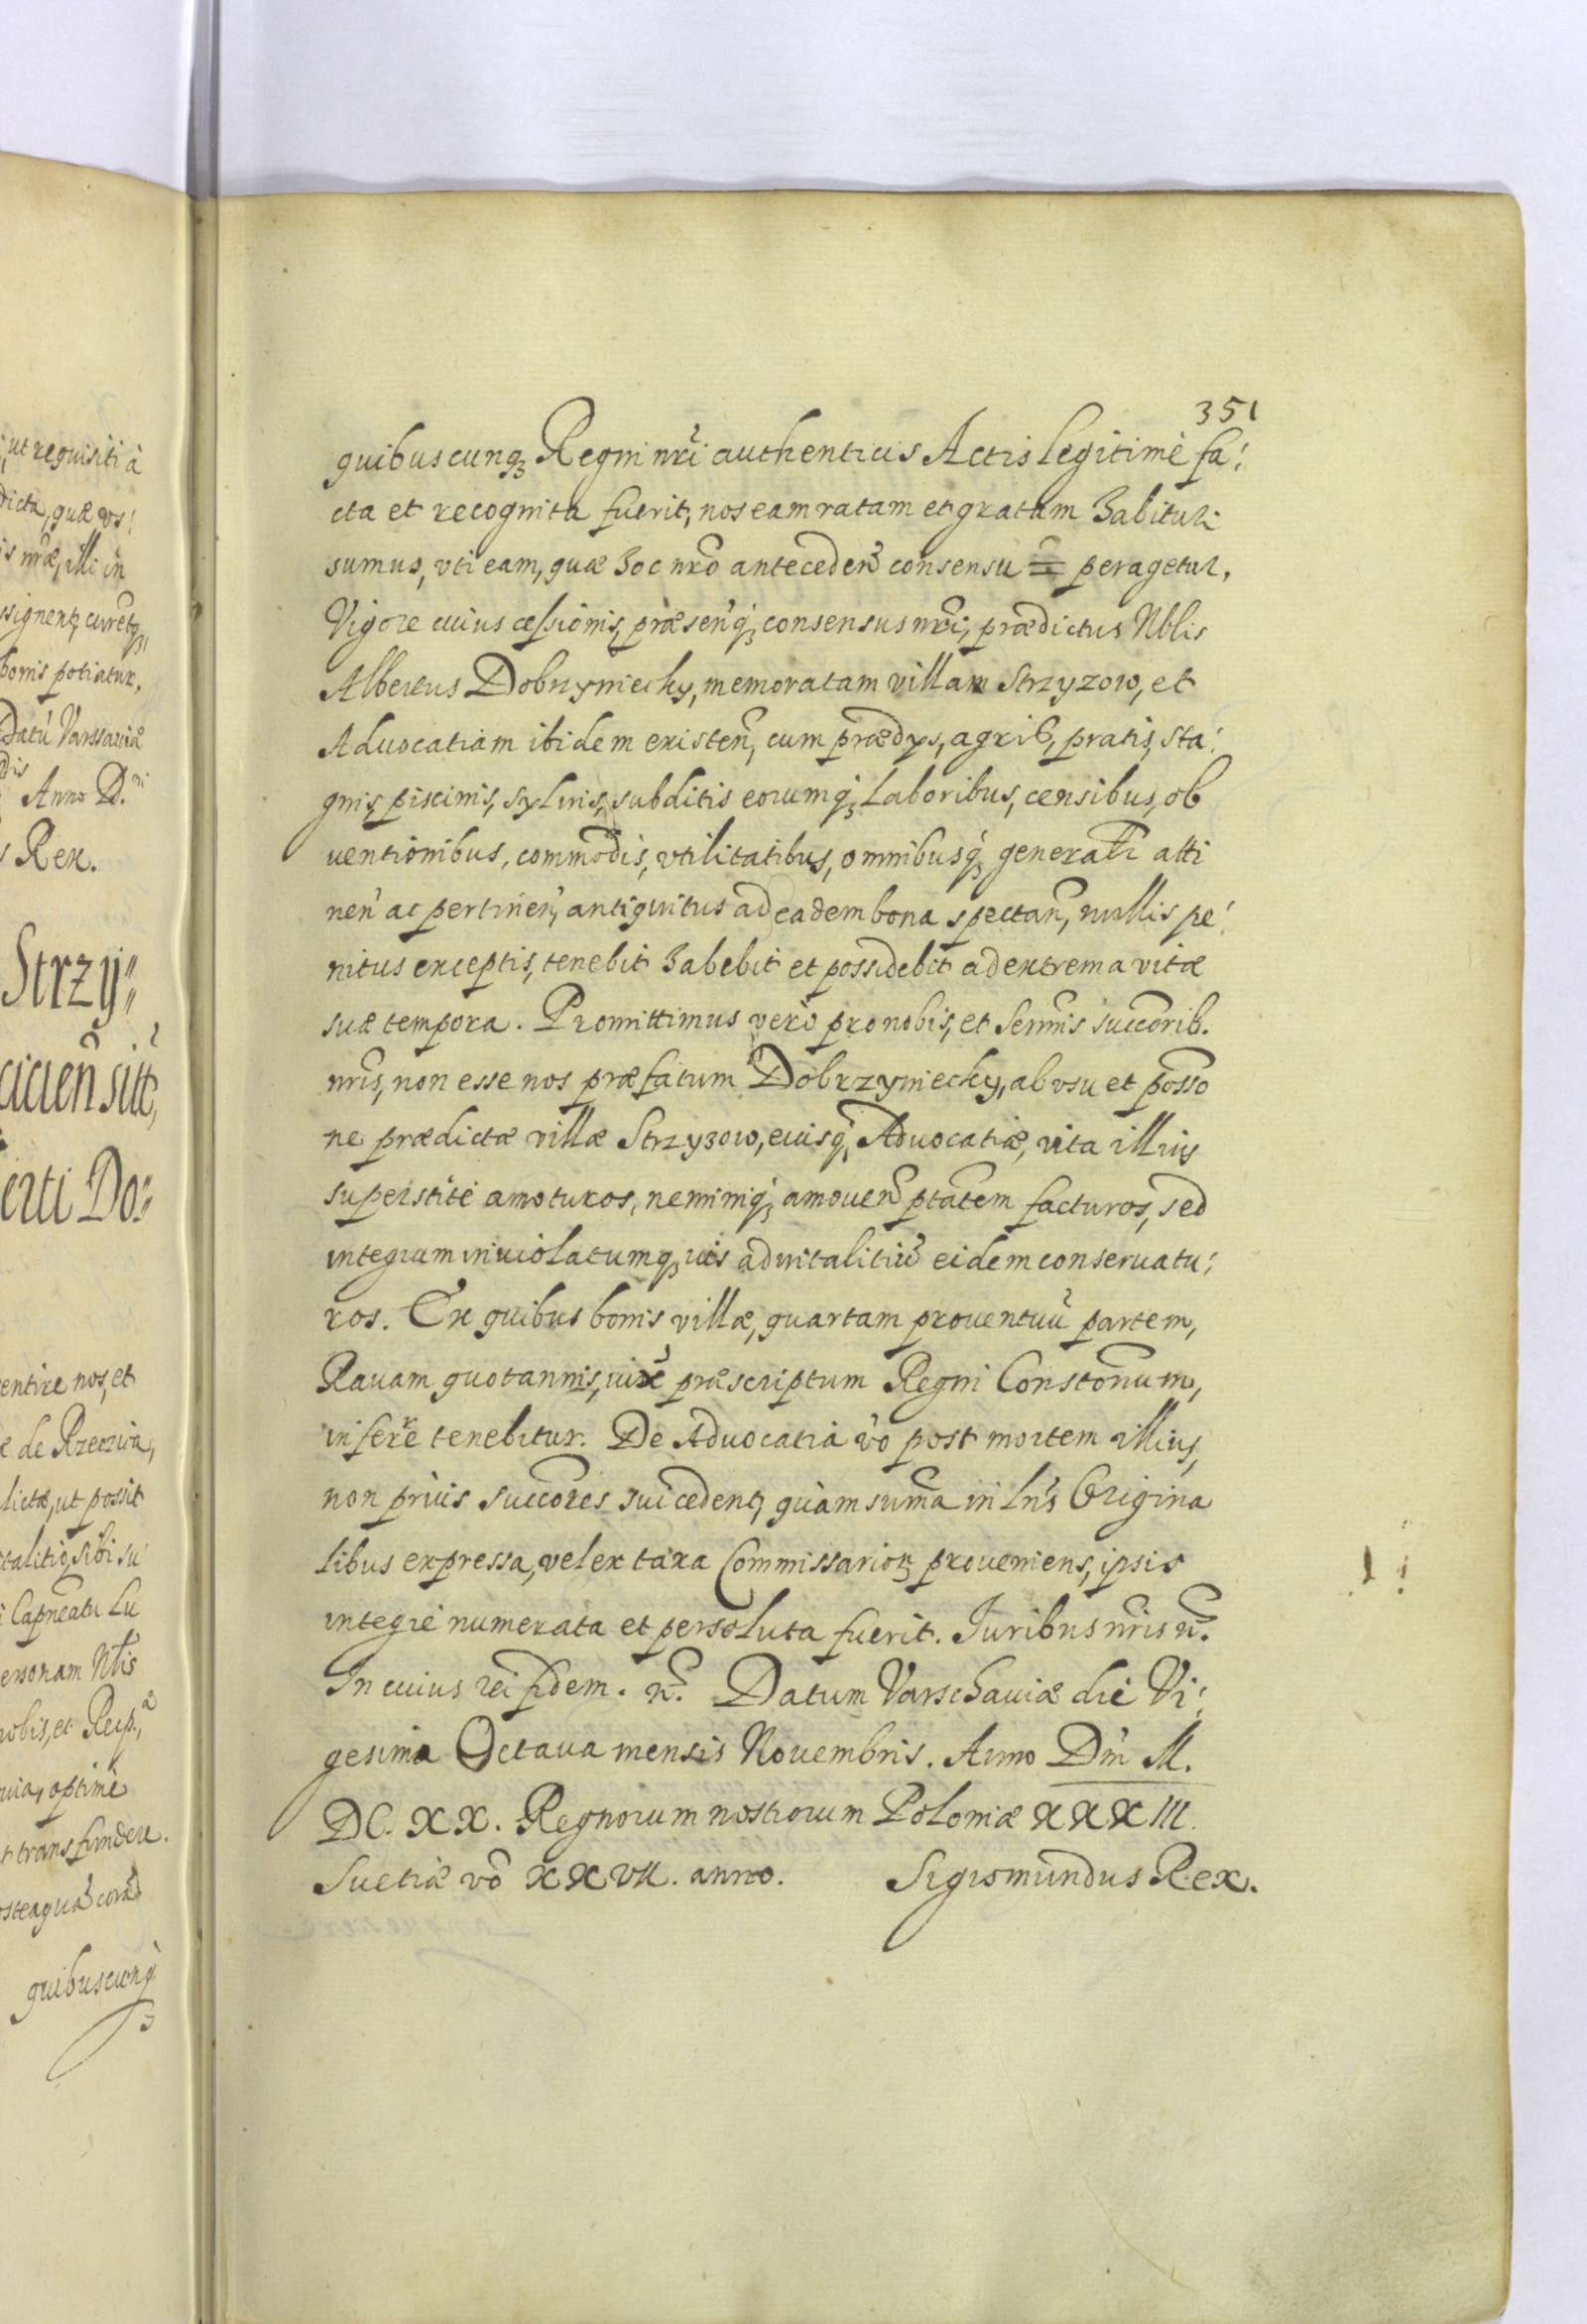 351
quibuscunq Regni nri authenticis Actis legitimè fa:
cta et recognita fuerit, nos eam ratam et gratam habituri
sumus, vti eam, quæ hoc nro anteceden consensu peragetur,
Vigore cuius cessionis, præsenq consensus nri, prædictus Nblis
Albertus Dobrzyniecky, memoratam villam Strzyzow, et
Aduocatiam ibidem existen, cum prædys, agrib, pratis, sta:
gnis, piscinis, syluis, subditis eorumq laboribus, censibus, ob
uentionibus, commodis, vtilitatibus, omnibusq generalr atti
nen ac pertinen, antiquitus ad eadem bona spectan, nullis pe:
nitus exceptis, tenebit habebit et possidebit ad extrema vitæ
suæ tempora. Promittimus verò pro nobis, et Sermis succorib.
nris, non esse nos præfatum Dobrzyniecky, ab vsu et posso
ne prædictæ villæ Strzyzow, eiusq Aduocatiæ, vita illius
superstite amoturos, neminiq amouen ptatem facturos, sed
integrum inuiolatumq ius aduitalitiu eidem conseruatu:
ros. Ex quibus bonis villæ, quartam prouentuu partem,
Rauam quotannis, iux præscriptum Regni Constonum,
inferre tenebitur. De Aduocatia vo post mortem illius,
non priùs succores succedent, quàm summa in lris Origina
libus expressa, vel ex taxa Commissarior proueniens, ipsis
integrè numerata et persoluta fuerit. Iuribus nris &.
In cuius rei fidem. &. Datum Varschauiæ die Vi:
gesima Octaua mensis Nouembris. Anno Dni M.
DC. XX. Regnorum nostrorum Poloniæ XXXIII.
Suetiæ vo XXVII. anno. Sigismundus Rex.